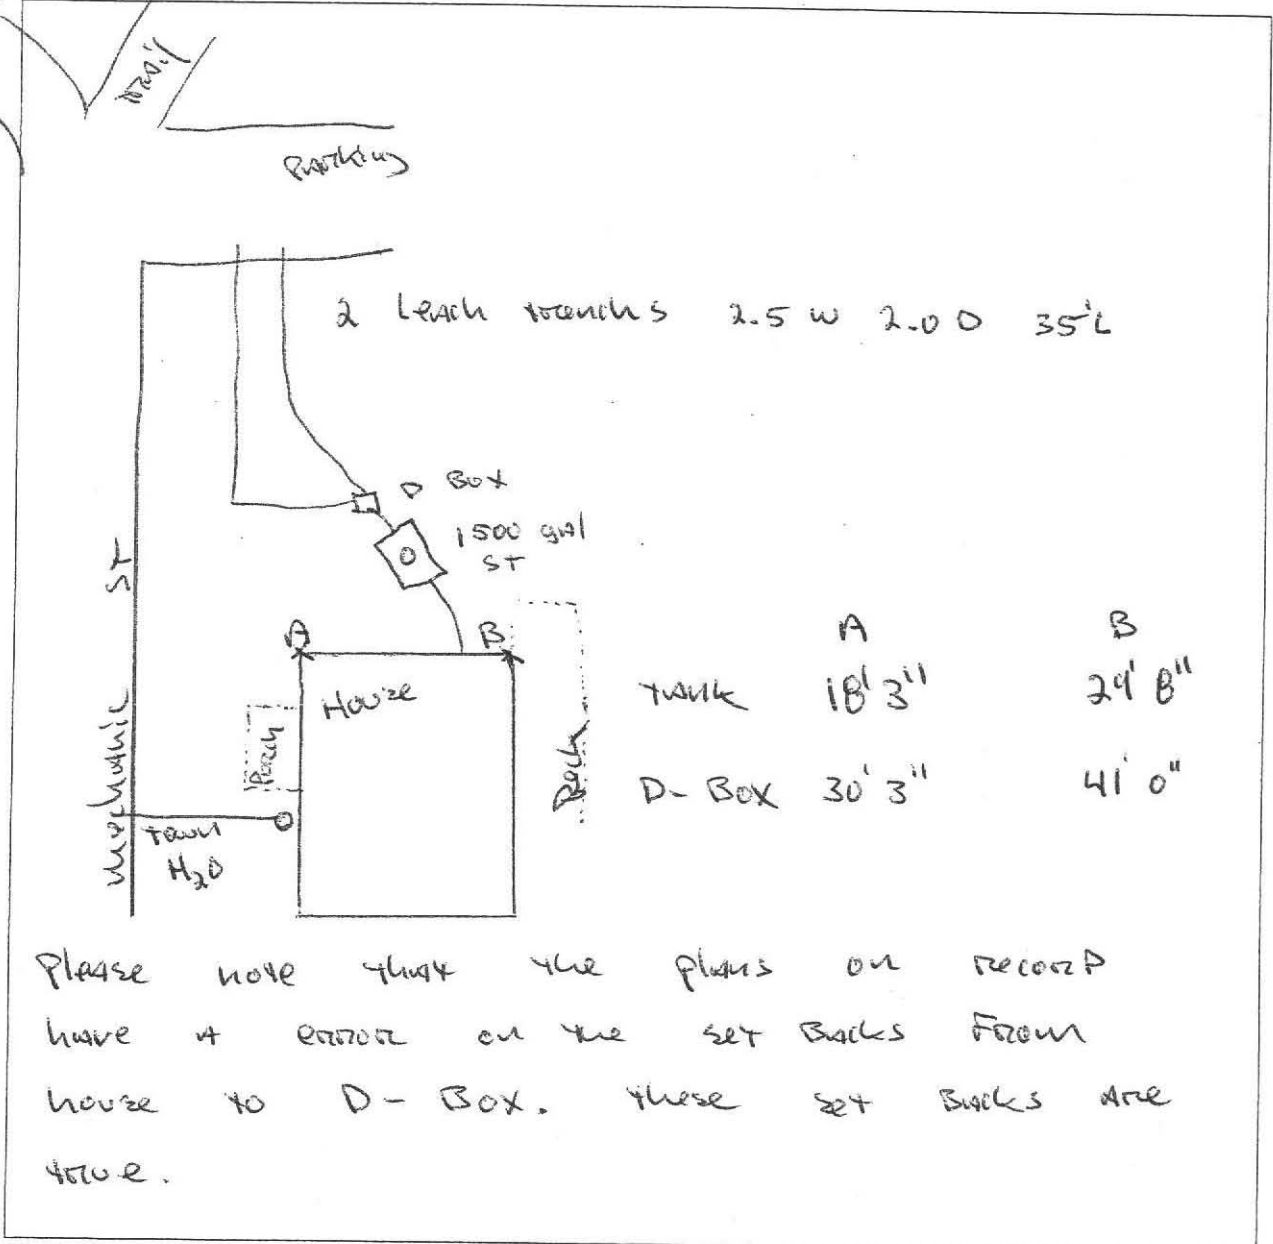 Parking
2 Leach trenchs 2.5 W 2.0 D 35'L
D Box
1500 gal
ST
Mechanic ST
A B
House
Porch
Deck
Town
H2O
A B
Tank 18' 3" 29' 8"
D-Box 30' 3" 41' 0"
Please note that the plans on record
have A error on the set Backs From
house to D-Box. these set Backs Are
true.